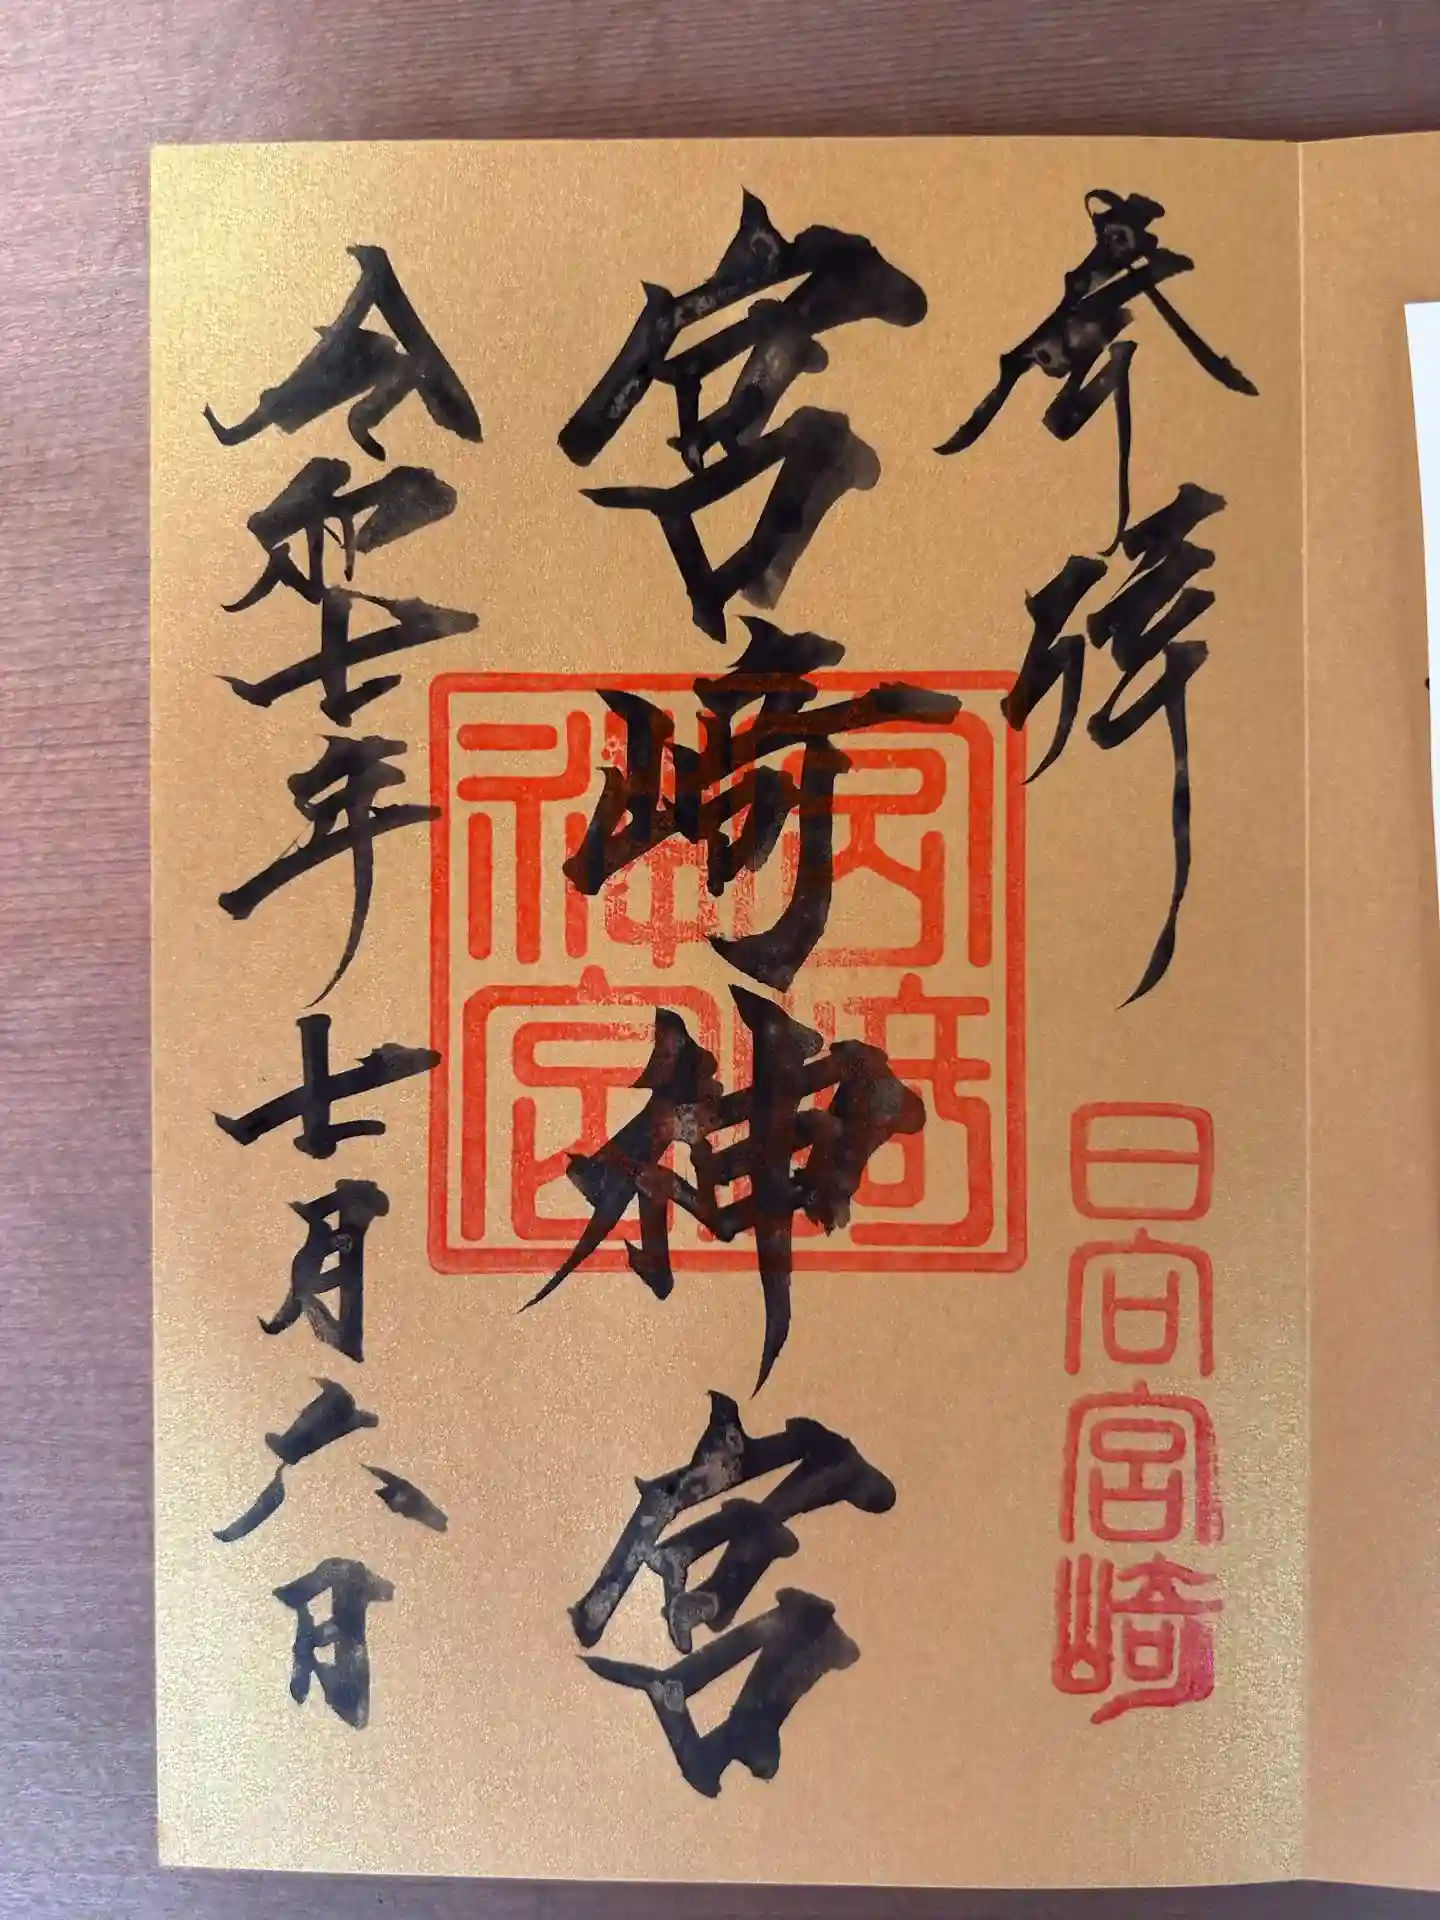 奉拝
日向宮崎
宮崎神宮
宮崎
神宮
令和七年七月六日